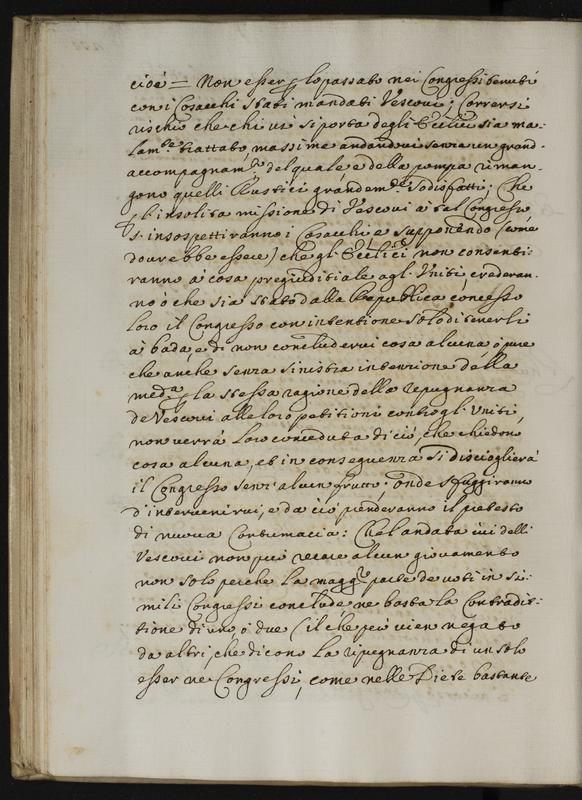 cioè = Non esser p lo passato nei Congressi tenuti
con i Cosacchi stati mandati Vescovi; Corversi
rischio che chi vi si porta degli Eccl.ci sia ma:
lam.te trattato, massime andandovi senza un grand
accompagnam.to del quale e della pompa riman-
gono quelli Rustici grandem.te sodisfatti; Che
p l'insolita missione di Vescovi à tal Congresso
s'insospettiranno i Cosacchi, e supponendo (come
dovrebbe essere) che gl'Eccl.ci non consenti-
ranno à cosa pregiuditiale agl'Uniti, crederan-
no ò che sia stato dalla Republica concesso
loro il Congresso con intentione solo di tenerli
à bada, e di non concludervi cosa alcuna, ò pure
che anche senza sinistra intenzione della
med.a p la stessa ragione della repugnanza
de Vescovi alle loro petitioni contro gl'Uniti,
non verrà loro conceduta di ciò, che chiedono
cosa alcuna, et in conseguenza si discioglierà
il Congresso senz'alcun frutto; onde sfuggiranno
d'intervenirvi, e da ciò prenderanno il pretesto
di nuova Contumacia: Che l'andata ivi delli
Vescovi non può recare alcun giovamento
non solo perche la magg.r parte de voti in si:
mili Congressi conclude, ne basta la Contradit:
tione di uno, ò due (il che però vien negato
da altri, che dicono la ripugnanza di un solo
esser ne Congressi, come nelle Diete bastante